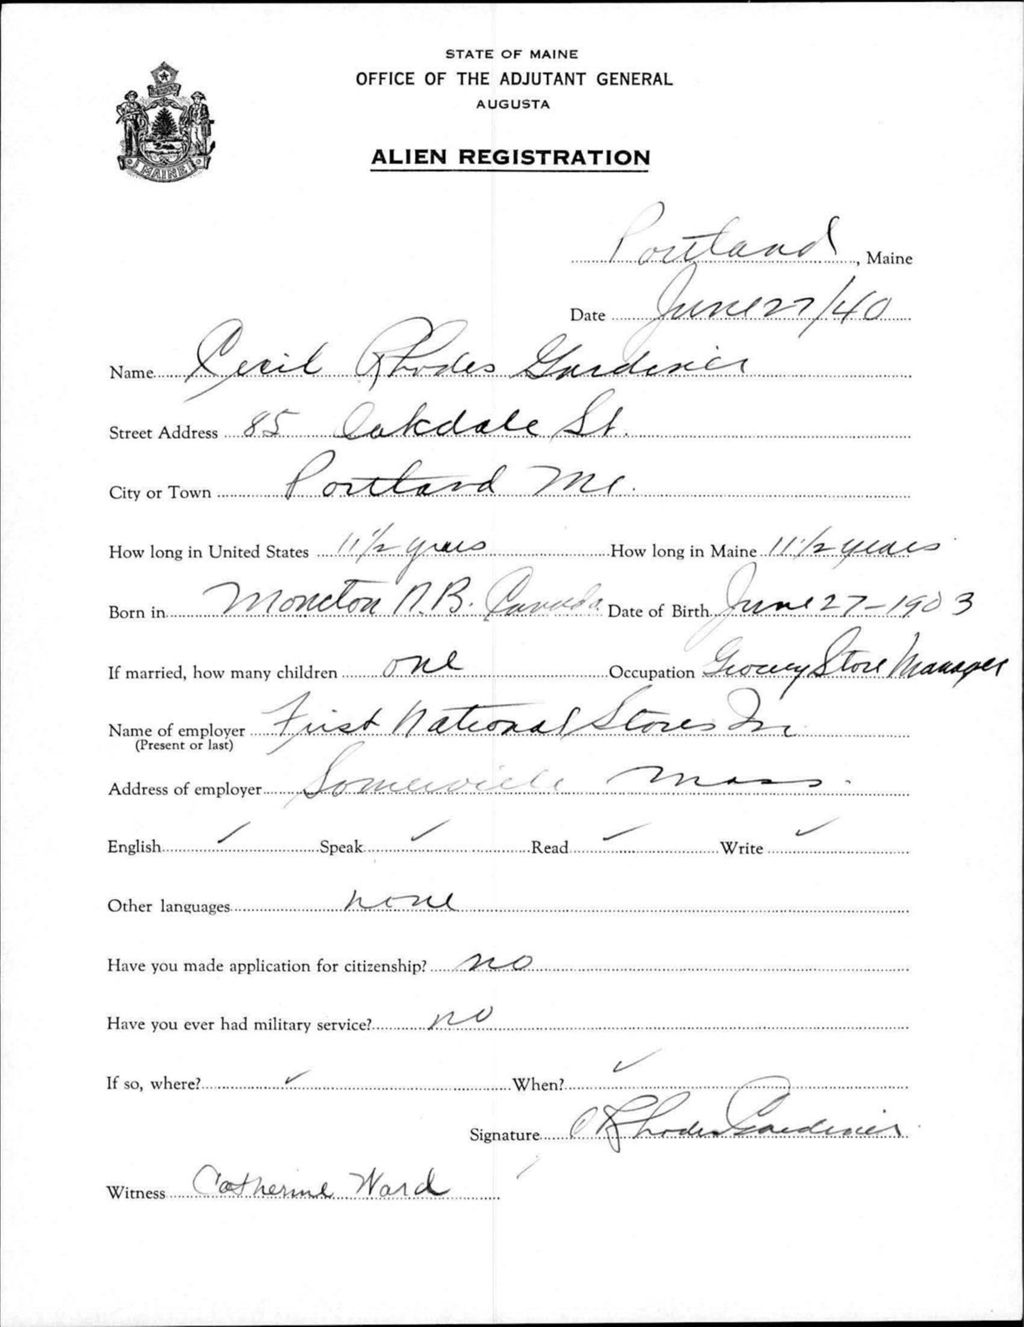 STATE OF MAINE
OFFICE OF THE ADJUTANT GENERAL
AUGUSTA
MAINE
ALIEN REGISTRATION
Portland, Maine
Date June 27/40
Name Cecil Rhodes Gardiner
Street Address 85 Oakdale St.
City or Town Portland Me.
How long in United States 11 1/2 years How long in Maine 11 1/2 years
Born in Moncton N.B. Canada Date of Birth June 27-1903
If married, how many children one Occupation Grocery Store Manager
Name of employer First National Stores Inc
(Present or last)
Address of employer Somerville Mass.
English ✓ Speak ✓ Read ✓ Write ✓
Other languages none
Have you made application for citizenship? no
Have you ever had military service? no
If so, where? ✓ When? ✓
Signature C Rhodes Gardiner
Witness Catherine Ward